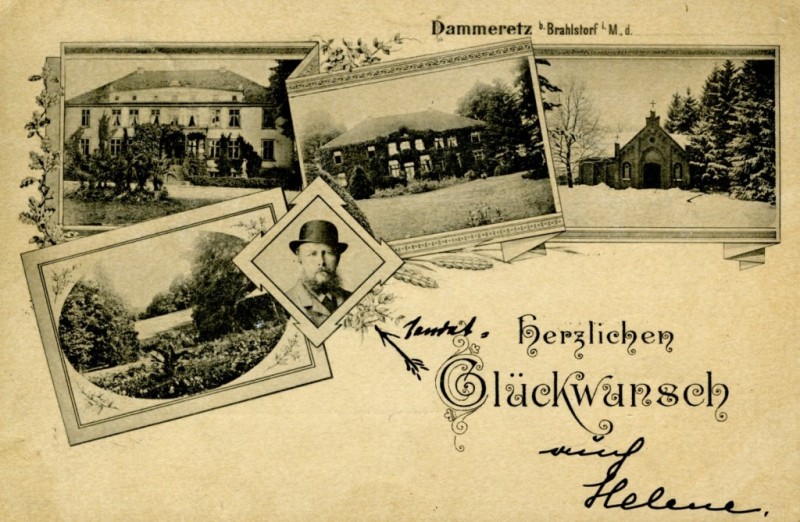 Dammeretz b. Brahlstorf i. M. d.
sendet.
Herzlichen
Glückwunsch
auch
Helene.